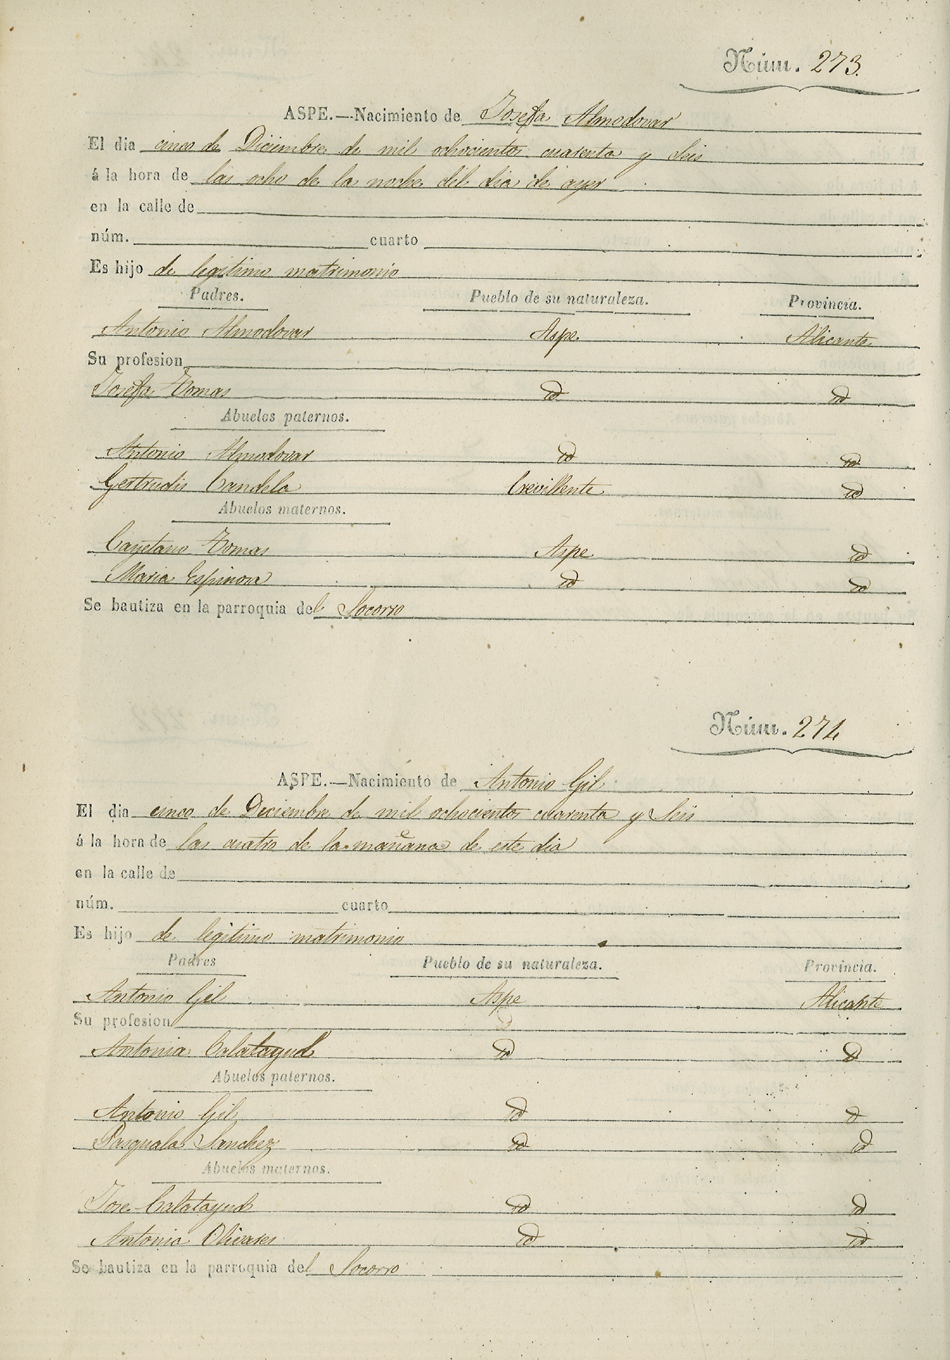 Núm. 273.
ASPE.—Nacimiento de Josefa Almodovar
El dia cinco de Diciembre de mil ochocientos cuarenta y Seis
á la hora de las ocho de la noche del dia de ayer
en la calle de
núm. cuarto
Es hijo de legitimo matrimonio
Padres. Pueblo de su naturaleza. Provincia.
Antonio Almodovar Aspe. Alicante
Su profesion
Josefa Tomas id id
Abuelos paternos.
Antonio Almodovar id id
Gertrudis Candela Crevillente id
Abuelos maternos.
Cayetano Tomas Aspe id
Maria Espinosa id id
Se bautiza en la parroquia del Socorro
Núm. 274
ASPE.—Nacimiento de Antonio Gil
El dia cinco de Diciembre de mil ochocientos cuarenta y Seis
á la hora de las cuatro de la mañana de este dia
en la calle de
núm. cuarto
Es hijo de legitimo matrimonio
Padres Pueblo de su naturaleza. Provincia.
Antonio Gil Aspe Alicante
Su profesion
Antonia Calatayud id id
Abuelos paternos.
Antonio Gil id id
Pasquala Sanchez id id
Abuelos maternos.
Jose Calatayud id id
Antonia Olivares id id
Se bautiza en la parroquia del Socorro